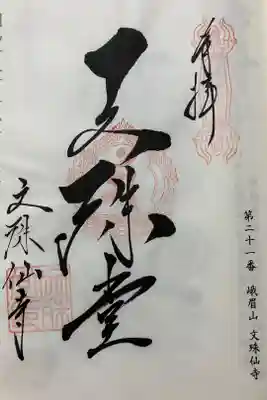 奉拝
第二十一番 峨眉山 文殊仙寺
文殊堂
文殊仙寺